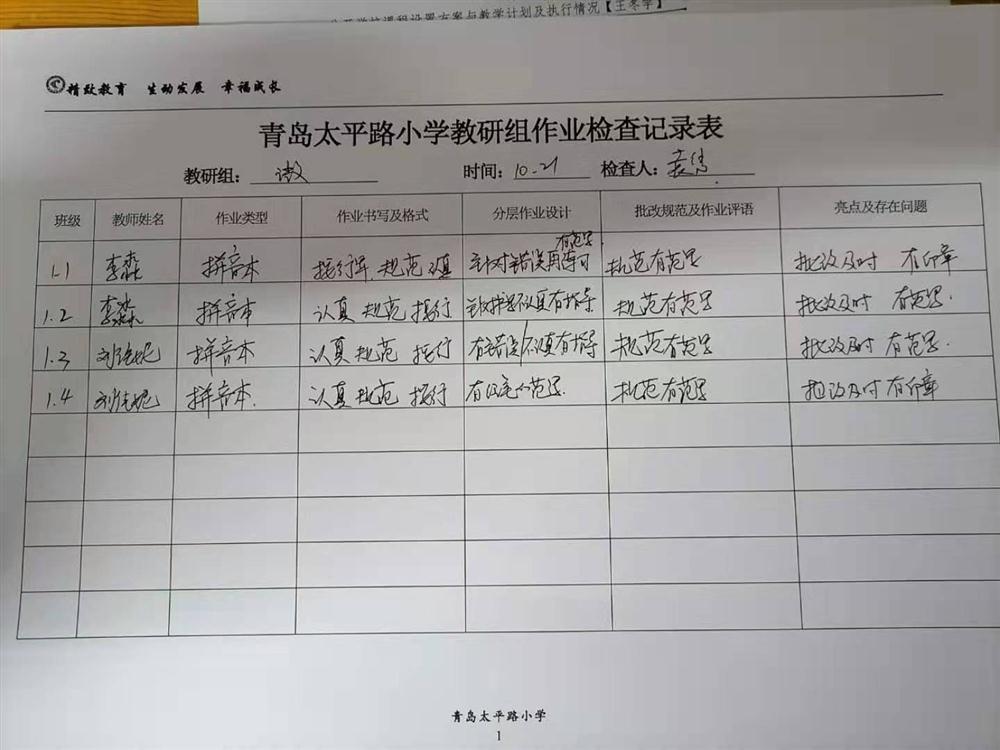 公开学校课程设置方案与教学计划及执行情况【王冬学】
精致教育 生动发展 幸福成长
青岛太平路小学教研组作业检查记录表
教研组： 时间：10.21 检查人：
班级 教师姓名 作业类型 作业书写及格式 分层作业设计 批改规范及作业评语 亮点及存在问题
有范写
1.1 李 拼音本 规范 认真 针对错误再练习 规范有范写 批改及时 有印章
1.2 李 拼音本 认真 规范 认真有指导 规范有范写 批改及时 有范写.
1.3 刘 妮 拼音本 认真 规范 有错误 认真有指导 规范有范写 批改及时 有范写.
1.4 刘 妮 拼音本. 认真 规范 有 范写. 规范有范写 批改及时 有印章
青岛太平路小学
1